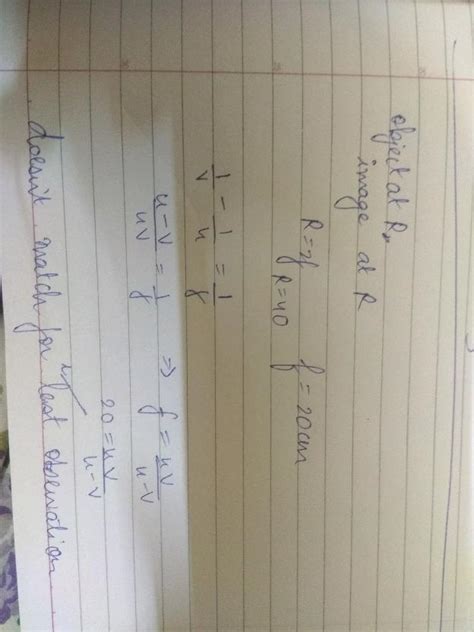 object at R,
image at R
R=2f
R=40 f = 20cm
1/v - 1/u = 1/f
u-v/uv = 1/f => f = uv/u-v
20 = uv/u-v
doesn't match for last observation.